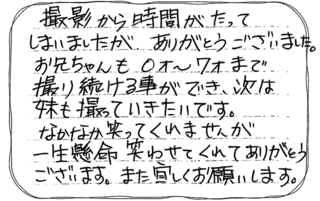 撮影から時間がたって
しまいましたが ありがとうございました。
お兄ちゃんも 0才〜7才まで
撮り続ける事ができ、次は
妹も撮っていきたいです。
なかなか笑ってくれませんが
一生懸命 笑わせてくれてありがとう
ございます。また宜しくお願いします。